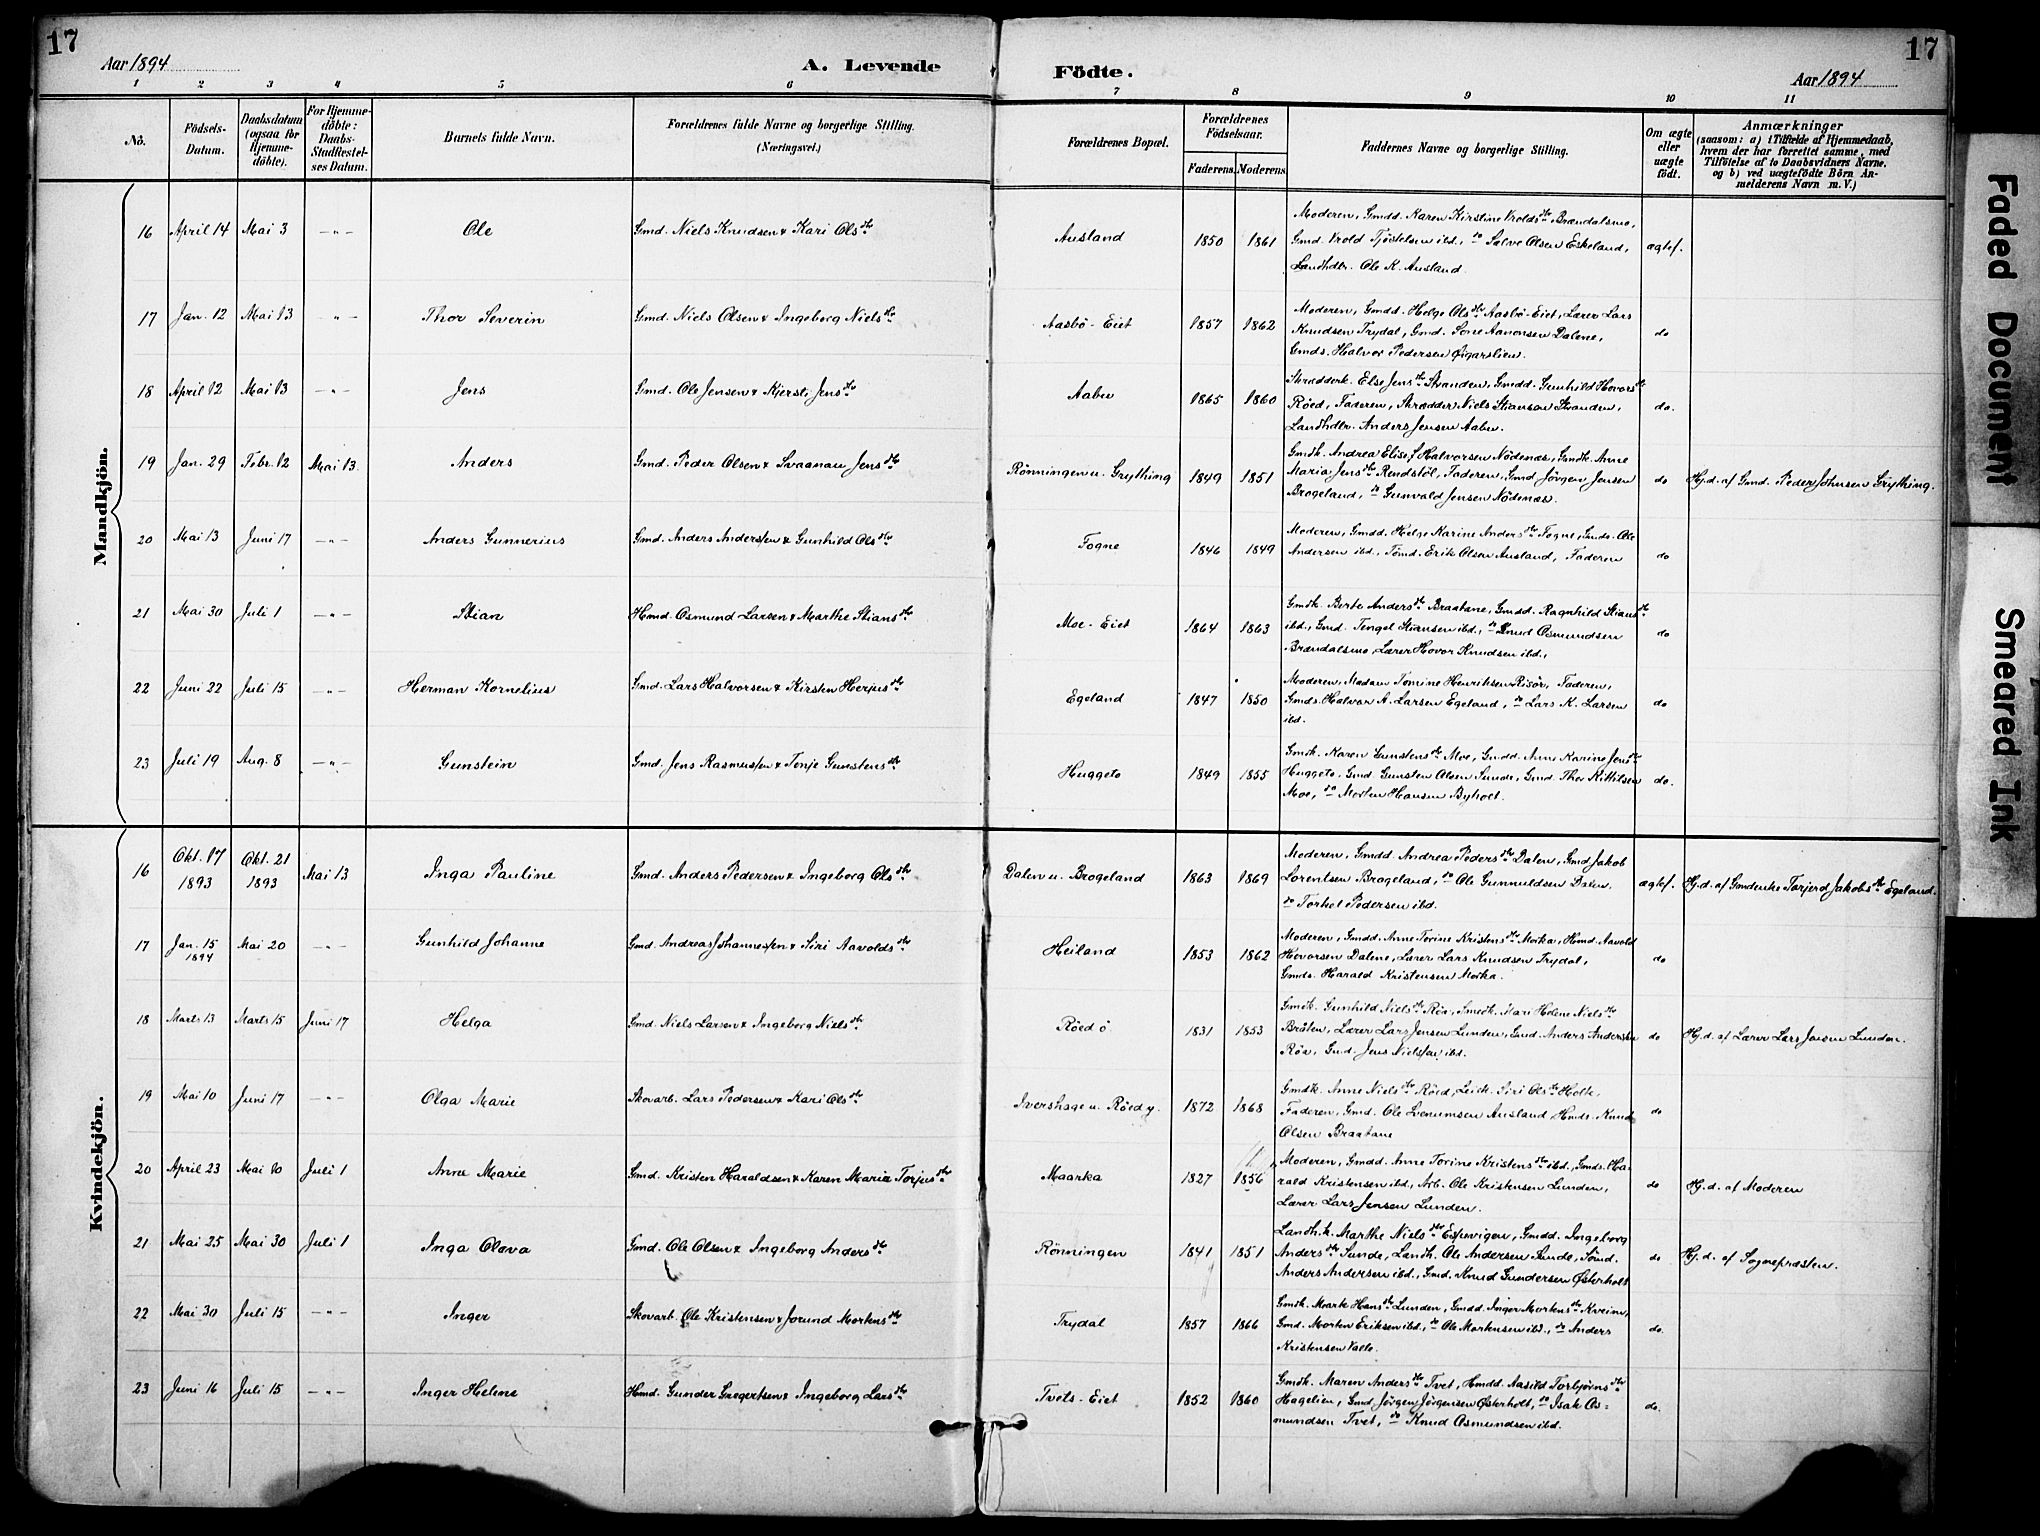 17
17
Aar 1894
A. Levende Födte.
Aar 1894
1 2 3 4 5 6 7 8 9 10 11
No.
Födsels-Datum.
Daabsdatum (ogsaa for Hjemme-döbte).
For Hjemme-döbte: Daabs-Stadfæstel-ses Datum.
Barnets fulde Navn.
Forældrenes fulde Navne og borgerlige Stilling. (Næringsvei.)
Forældrenes Bopæl.
Forældrenes Födselsaar.
Faderens. Moderens.
Faddernes Navne og borgerlige Stilling.
Om ægte eller uægte födt.
Anmærkninger
(saasom: a) i Tilfælde af Hjemmedaab, hvem der har forrettet samme, med Tilföielse af to Daabsvidners Navne, og b) ved uægtefödte Börn An-melderens Navn m. V.)
Mandkjön.
16 April 14 Mai 3 —"— Ole Gmd. Niels Knudsen & Kari Olsdtr Ausland 1850 1861 Moderen, Gmdd. Karen Kirstine Vroldsdtr Brændalsmo,
Gmd. Vrold Tjöstelsen ibd., do Salve Olsen Eskeland, ægtef.
Landhdlr. Ole K. Ausland.
17 Jan. 12 Mai 13 —"— Thor Severin Gmd. Niels Olsen & Ingeborg Nielsdtr Aasbö-Eiet 1857 1862 Moderen, Gmdd. Helge Olsdtr Aasbö-Eiet, Lærer Lars
Knudsen Trydal, Gmd. Sone Aanonsen Dalene, do
Gmds. Halvor Pedersen Øigarslien.
18 April 12 Mai 13 —"— Jens Gmd. Ole Jensen & Kjersti Jensdtr Aabu 1865 1860 Skrædderk. Else Jensdtr Stranden, Gmdd. Gunhild Hovorsdtr
Röed, Faderen, Skrædder Niels Stiansen Stranden, do.
Landhdlr. Anders Jensen Aabu.
19 Jan. 29 Febr. 12 Mai 13. Anders Gmd. Peder Olsen & Svaanau Jensdtr Rönningen u. Grything 1849 1851 Gmdk. Andrea Elise Halvorsen Nödenæs, Gmdk. Anne
Maria Jensdtr Rendstöl, Faderen, Gmd Jörgen Jensen do Hj.d. af Gmd. Peder Johnsen Grything.
Brogeland, do Gunvald Jensen Nödenæs.
20 Mai 13 Juni 17 —"— Anders Gunnerius Gmd. Anders Anderssen & Gunhild Olsdtr Fogne 1846 1849 Moderen, Gmdd. Helge Karine Andersdtr Fogne, Gmds. Ole
Andersen ibd., Tömd. Erik Olsen Ausland, Faderen do
21 Mai 30 Juli 1 —"— Stian Hmd. Osmund Larsen & Marthe Stiansdtr Moe-Eiet 1864 1863 Gmdk. Berte Andersdtr Braatane, Gmdd. Ragnhild Stiansdtr
ibd., Gmd. Tengel Stiansen ibd., do Knud Osmundsen do
Brændalsmo, Lærer Hovor Knudsen ibd.,
22 Juni 22 Juli 15 —"— Herman Kornelius Gmd. Lars Halvorsen & Kirsten Herjusdtr Egeland 1847 1850 Moderen, Madam Tomine Henriksen Risör, Faderen,
Gmds. Halvor A. Larsen Egeland, do Lars K. Larsen do
ibd.
23 Juli 19 Aug. 8 —"— Gunstein Gmd. Jens Rasmussen & Tonje Gunstensdtr Huggeto 1849 1855 Gmdk. Karen Gunstensdtr Moe, Gmdd. Anne Karine Jensdtr
Huggeto. Gmd Gunsten Olsen Sunde, Gmd. Thor Kittilsen do.
Moe, do Morten Hansen Byholt.
Kvindekjön.
16 Okt. 17 1893 Okt. 21 1893 Mai 13 Inga Pauline Gmd. Anders Pedersen & Ingeborg Olsdtr Dalen u. Brogeland 1863 1869 Moderen, Gmdd. Andrea Pedersdtr Dalen, Gmd Jakob
Lorentsen Brogeland, do Ole Gunnuldsen Dalen. ægtef. Hj.d. af Gmdenke Torjerd Jakobsdtr Egeland.
do Torkel Pedersen ibd.
17 Jan. 15 1894 Mai 20 —"— Gunhild Johanne Gmd. Andreas Johannessen & Siri Aavoldsdtr Heiland 1853 1862 Moderen, Gmdd. Anne Torine Kristensdtr Morka, Hmd. Aavold
Hovorsen Dalene, Lærer Lars Knudsen Trydal, do
Gmds. Harald Kristensen Morka.
18 Marts 13 Marts 15 Juni 17 Helga Gmd. Niels Larsen & Ingeborg Nielsdtr Röed ö 1831 1853 Gmdk. Gunhild Nielsdtr Röa, Smedk. Mari Helene Nielsdtr
Bråten, Lærer Lars Jensen Lunden, Gmd. Anders Andersen do Hj.d. af Lærer Lars Jensen Lunden.
Röa, Gmd. Jens Nielssen ibd.
19 Mai 10 Juni 17 —"— Olga Marie Skovarb. Lars Pedersen & Kari Olsdtr Ivershage u. Röed y. 1872 1868 Gmdk. Anne Nielsdtr Röed, Leiek. Siri Olsdtr Holte,
Faderen, Gmd. Ole Svenumsen Ausland Hmds. Knud do
Olsen Braatane
20 April 23 Mai 10 Juli 1 Anne Marie Gmd. Kristen Haraldsen & Karen Maria Torjusdtr Maarka 1827 1856 Moderen, Gmdd. Anne Torine Kristensdtr ibd., Gmds. Ha-
rald Kristensen ibd., Arb. Ole Kristensen Lunden, do Hj.d. af Moderen
Lærer Lars Jensen Lunden.
21 Mai 25 Mai 30 Juli 1 Inga Olava Gmd. Ole Olsen & Ingeborg Andersdtr Rönningen 1841 1851 Landh.k. Marthe Nielsdtr Espevigen, Gmdd. Ingeborg
Andersdtr Sunde, Landh. Ole Andersen Sunde, Tömd. do Hj.d. af Sognepræsten.
Anders Andersen ibd., Gmd. Knud Gundersen Østerholt
22 Mai 30 Juli 15 —"— Inger Skovarb. Ole Kristensen & Jorund Mortensdtr Trydal 1857 1866 Gmdk. Marte Hansdtr Lunden, Gmdd. Inger Mortensdtr Kveim,
Gmd. Morten Eriksen ibd., do Ole Mortensen ibd., do Anders do.
Kristensen Valle.
23 Juni 16 Juli 15 —"— Inger Helene Hmd. Gunder Gregertsen & Ingeborg Larsdtr Tvets-Eiet 1852 1860 Gmdk. Maren Andersdtr Tvet, Hmdd. Aasild Torbjørnsdtr
Hagelien, Gmd. Jörgen Jörgensen Østerholt, do Isak Os- do.
mundsen Tvet, do Knud Osmundsen ibd.
Faded Document
Smeared Ink